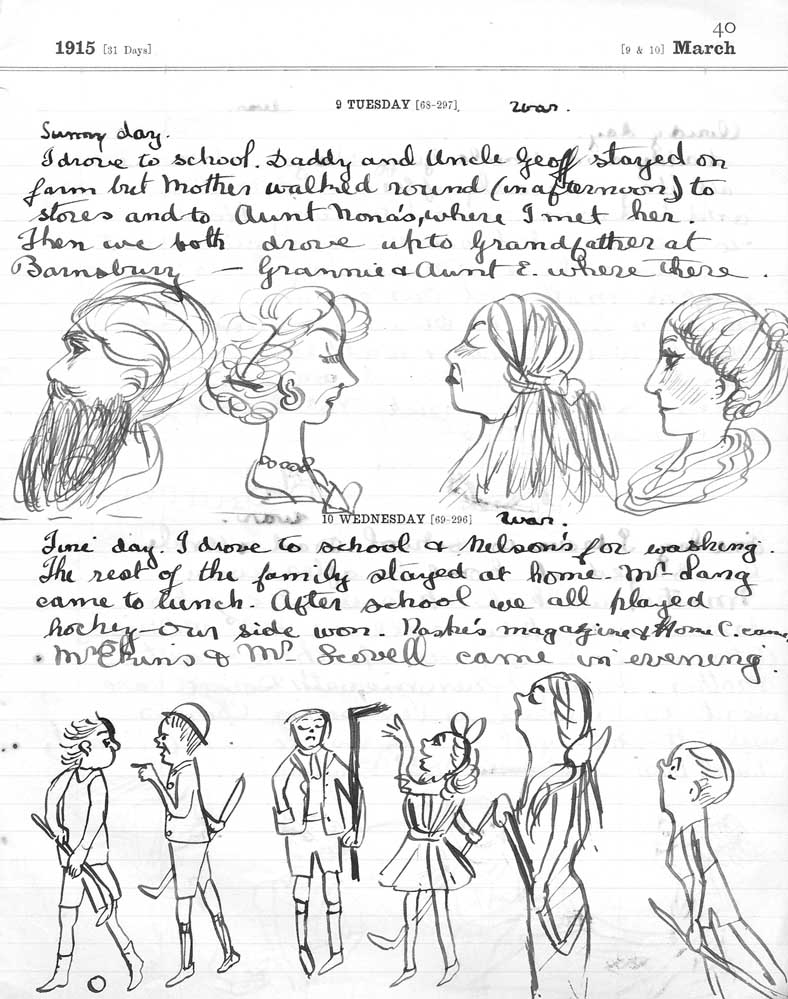 40
1915 [31 Days] [9 & 10] March
9 TUESDAY [68-297] War.
Sunny day.
I drove to school. Daddy and Uncle Geoff stayed on
farm but Mother walked round (in afternoon) to
stores and to Aunt Nona's, where I met her.
Then we both drove up to Grandfather at
Barnsbury — Grannie & Aunt E. where there.
10 WEDNESDAY [69-296] War.
Fine day. I drove to school & Nelson's for washing.
The rest of the family stayed at home. Mr Lang
came to lunch. After school we all played
hockey — Our side won. Nashe's magazine & Home C. came
Mr Ekins & Mr Scovell came in evening.